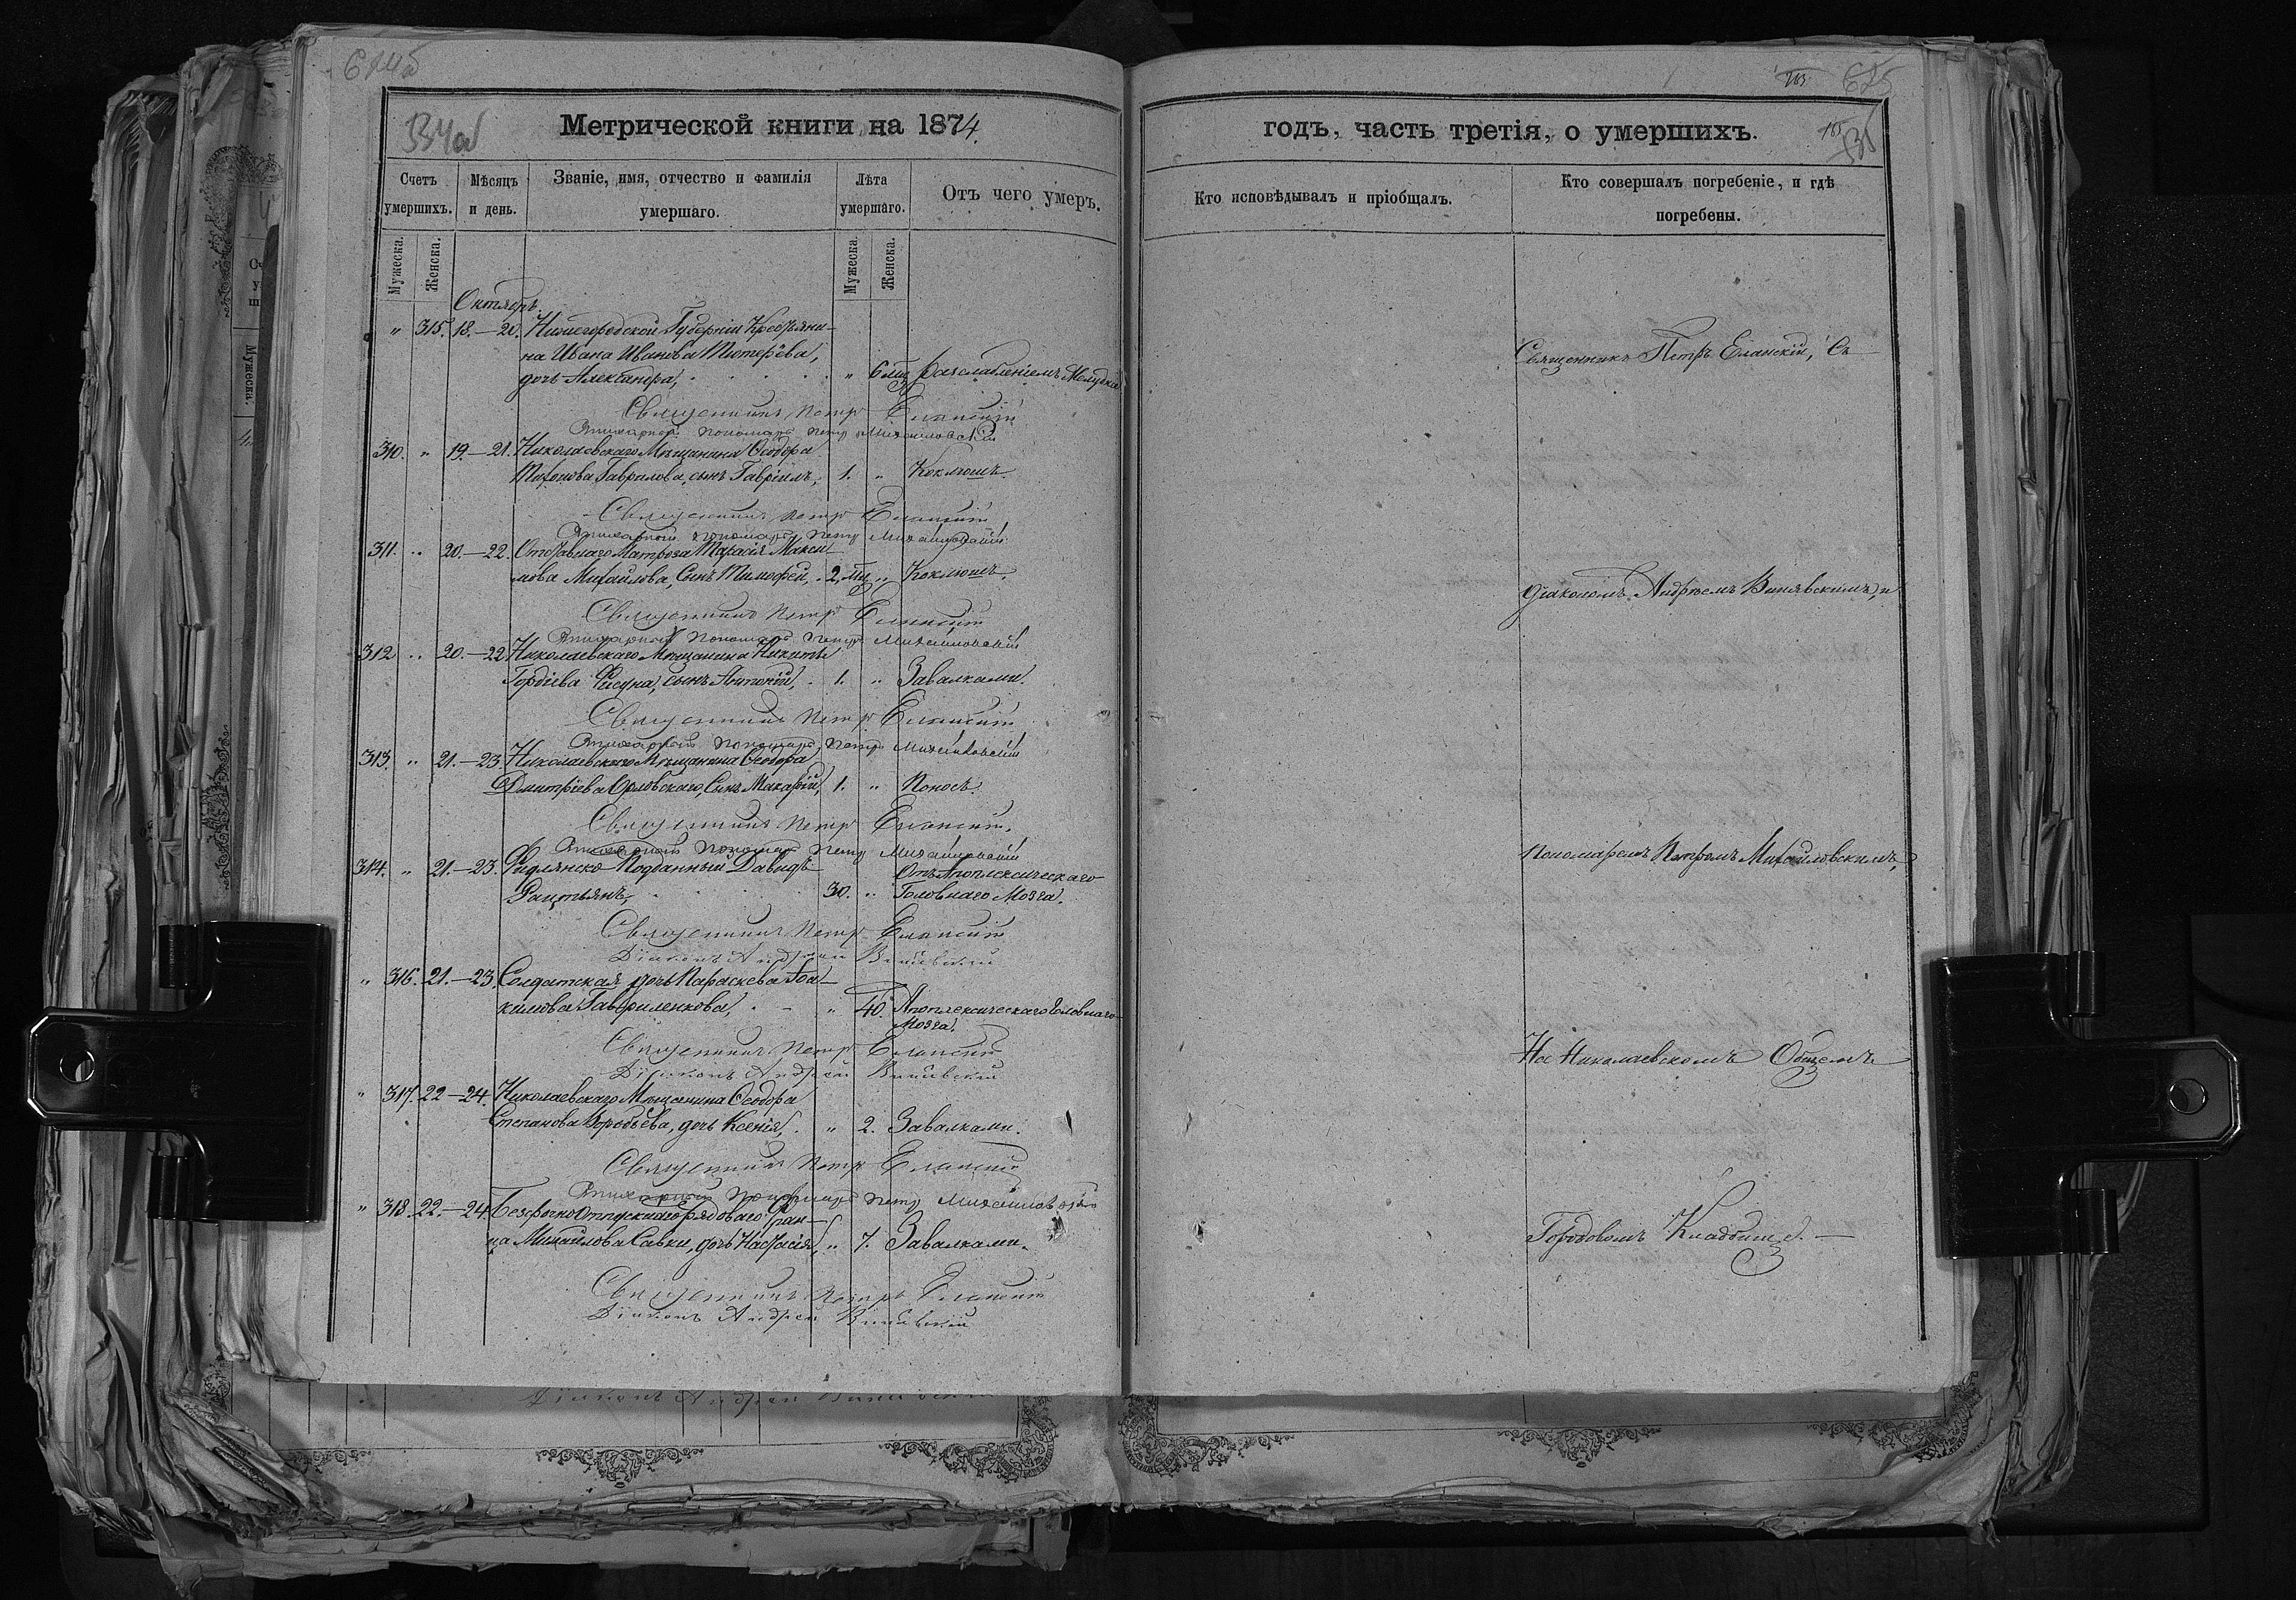 Метрической книги на 1874
Счетъ умершихъ.
Мѣсяцъ и день.
Званіе, имя, отчество и фамилія умершаго.
Лѣта умершаго.
Отъ чего умеръ.
Мужеска.
Женска.
Мужеска.
Женска.
Октябрь.
" 315. 18.—20. Нижегородской Губерніи Крестьяни-
на Ивана Иванова
дочь Александра, " 6 мц
Священникъ Петръ Еланскій
Пономарь Петръ Михайловскій
310. " 19.—21. Николаевскаго Мѣщанина Ѳеодора
Гаврилова, сынъ Гавріилъ, 1. " Коклюшъ.
Священникъ Петръ Еланскій
Пономарь Петръ Михайловскій
311. " 20.—22. Отставнаго Матроза Тарасія Макси-
мова Михайлова, Сынъ Тимофей, 2 " Коклюшъ.
Священникъ Петръ Еланскій
Пономарь Петръ Михайловскій
312 " 20.—22 Николаевскаго Мѣщанина Никиты
Гордіева сынъ Антоній, 1. " Завалками.
Священникъ Петръ Еланскій
Пономарь Петръ Михайловскій
313. " 21.—23. Николаевскаго Мѣщанина Ѳеодора
Дмитріева Орловскаго, Сынъ Макарій, 1. " Поносъ.
Священникъ Петръ Еланскій
Пономарь Петръ Михайловскій
314. " 21.—23. Подданный Давидъ Отъ Апоплексическаго
30. " Головнаго Мозга.
Священникъ Петръ Еланскій
Діаконъ Андрей
" 316. 21.—23. Солдатская дочь Параскева Іоа-
кимова Гавриленкова, " 40. Апоплексическаго Головнаго
Мозга.
Священникъ Петръ Еланскій
Діаконъ Андрей
" 317. 22.—24. Николаевскаго Мѣщанина Ѳеодора
Степанова Воробьева, дочь Ксенія, " 2. Завалками.
Священникъ Петръ Еланскій
Пономарь Петръ Михайловскій
" 318. 22.—24. Безсрочноотпускнаго рядоваго Фран-
ца Михайлова Савки, дочь Настасія, " 7. Завалками.
Священникъ Петръ Еланскій
Діаконъ Андрей
годъ, часть третія, о умершихъ.
Кто исповѣдывалъ и пріобщалъ.
Кто совершалъ погребеніе, и гдѣ погребены.
Священникъ Петръ Еланскій, Съ
Діакономъ Андреемъ и
Пономаремъ Петромъ Михайловскимъ,
На Николаевскомъ Общемъ
Городовомъ Кладбищѣ.